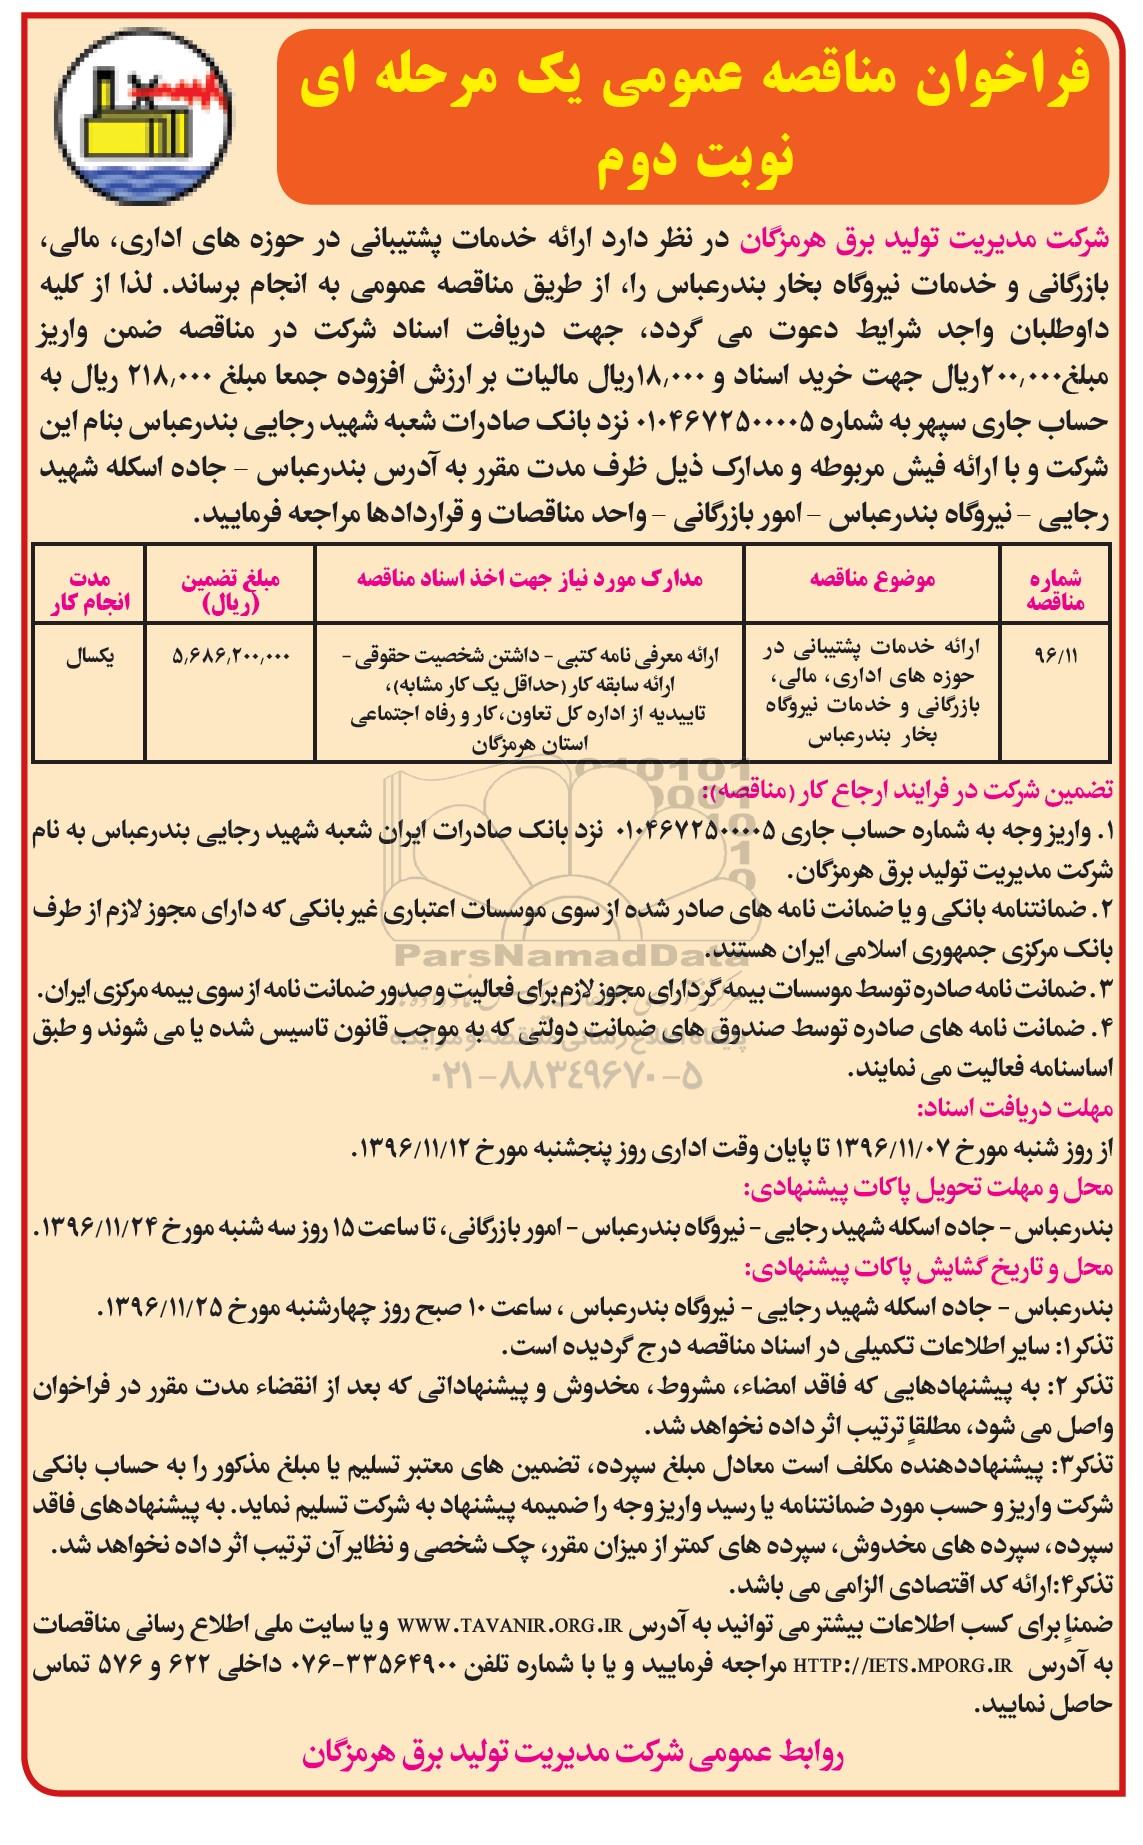 فراخوان مناقصه عمومی یک مرحله ای
نوبت دوم
شرکت مدیریت تولید برق هرمزگان در نظر دارد ارائه خدمات پشتیبانی در حوزه های اداری، مالی،
بازرگانی و خدمات نیروگاه بخار بندرعباس را، از طریق مناقصه عمومی به انجام برساند. لذا از کلیه
داوطلبان واجد شرایط دعوت می گردد، جهت دریافت اسناد شرکت در مناقصه ضمن واریز
مبلغ۲۰۰,۰۰۰ریال جهت خرید اسناد و ۱۸,۰۰۰ریال مالیات بر ارزش افزوده جمعا مبلغ ۲۱۸,۰۰۰ ریال به
حساب جاری سپهر به شماره ۰۱۰۴۶۷۲۵۰۰۰۰۵ نزد بانک صادرات شعبه شهید رجایی بندرعباس بنام این
شرکت و با ارائه فیش مربوطه و مدارک ذیل ظرف مدت مقرر به آدرس بندرعباس – جاده اسکله شهید
رجایی – نیروگاه بندرعباس – امور بازرگانی – واحد مناقصات و قراردادها مراجعه فرمایید.
شماره
مناقصه
موضوع مناقصه
مدارک مورد نیاز جهت اخذ اسناد مناقصه
مبلغ تضمین
(ریال)
مدت
انجام کار
۹۶/۱۱
ارائه خدمات پشتیبانی در
حوزه های اداری، مالی،
بازرگانی و خدمات نیروگاه
بخار بندرعباس
ارائه معرفی نامه کتبی - داشتن شخصیت حقوقی -
ارائه سابقه کار (حداقل یک کار مشابه)،
تاییدیه از اداره کل تعاون، کار و رفاه اجتماعی
استان هرمزگان
۵,۶۸۶,۲۰۰,۰۰۰
یکسال
تضمین شرکت در فرایند ارجاع کار (مناقصه):
۱. واریز وجه به شماره حساب جاری ۰۱۰۴۶۷۲۵۰۰۰۰۵ نزد بانک صادرات ایران شعبه شهید رجایی بندرعباس به نام
شرکت مدیریت تولید برق هرمزگان.
۲. ضمانتنامه بانکی و یا ضمانت نامه های صادر شده از سوی موسسات اعتباری غیر بانکی که دارای مجوز لازم از طرف
بانک مرکزی جمهوری اسلامی ایران هستند.
ParsNamadData
۳. ضمانت نامه صادره توسط موسسات بیمه گر دارای مجوز لازم برای فعالیت و صدور ضمانت نامه از سوی بیمه مرکزی ایران.
۴. ضمانت نامه های صادره توسط صندوق های ضمانت دولتی که به موجب قانون تاسیس شده یا می شوند و طبق
پایگاه اطلاع رسانی مناقصه و مزایده
اساسنامه فعالیت می نمایند.
۰۲۱-۸۸۳۴۹۶۷۰-۵
مهلت دریافت اسناد:
از روز شنبه مورخ ۱۳۹۶/۱۱/۰۷ تا پایان وقت اداری روز پنجشنبه مورخ ۱۳۹۶/۱۱/۱۲.
محل و مهلت تحویل پاکات پیشنهادی:
بندرعباس - جاده اسکله شهید رجایی - نیروگاه بندرعباس - امور بازرگانی، تا ساعت ۱۵ روز سه شنبه مورخ ۱۳۹۶/۱۱/۲۴.
محل و تاریخ گشایش پاکات پیشنهادی:
بندرعباس - جاده اسکله شهید رجایی - نیروگاه بندرعباس ، ساعت ۱۰ صبح روز چهارشنبه مورخ ۱۳۹۶/۱۱/۲۵.
تذکر۱: سایر اطلاعات تکمیلی در اسناد مناقصه درج گردیده است.
تذکر ۲: به پیشنهادهایی که فاقد امضاء، مشروط، مخدوش و پیشنهاداتی که بعد از انقضاء مدت مقرر در فراخوان
واصل می شود، مطلقاً ترتیب اثر داده نخواهد شد.
تذکر۳: پیشنهاددهنده مکلف است معادل مبلغ سپرده، تضمین های معتبر تسلیم یا مبلغ مذکور را به حساب بانکی
شرکت واریز و حسب مورد ضمانتنامه یا رسید واریز وجه را ضمیمه پیشنهاد به شرکت تسلیم نماید. به پیشنهادهای فاقد
سپرده، سپرده های مخدوش، سپرده های کمتر از میزان مقرر، چک شخصی و نظایر آن ترتیب اثر داده نخواهد شد.
تذکر۴:ارائه کد اقتصادی الزامی می باشد.
ضمناً برای کسب اطلاعات بیشتر می توانید به آدرس WWW.TAVANIR.ORG.IR و یا سایت ملی اطلاع رسانی مناقصات
به آدرس HTTP://IETS.MPORG.IR مراجعه فرمایید و یا با شماره تلفن ۳۳۵۶۴۹۰۰-۰۷۶ داخلی ۶۲۲ و ۵۷۶ تماس
حاصل نمایید.
روابط عمومی شرکت مدیریت تولید برق هرمزگان